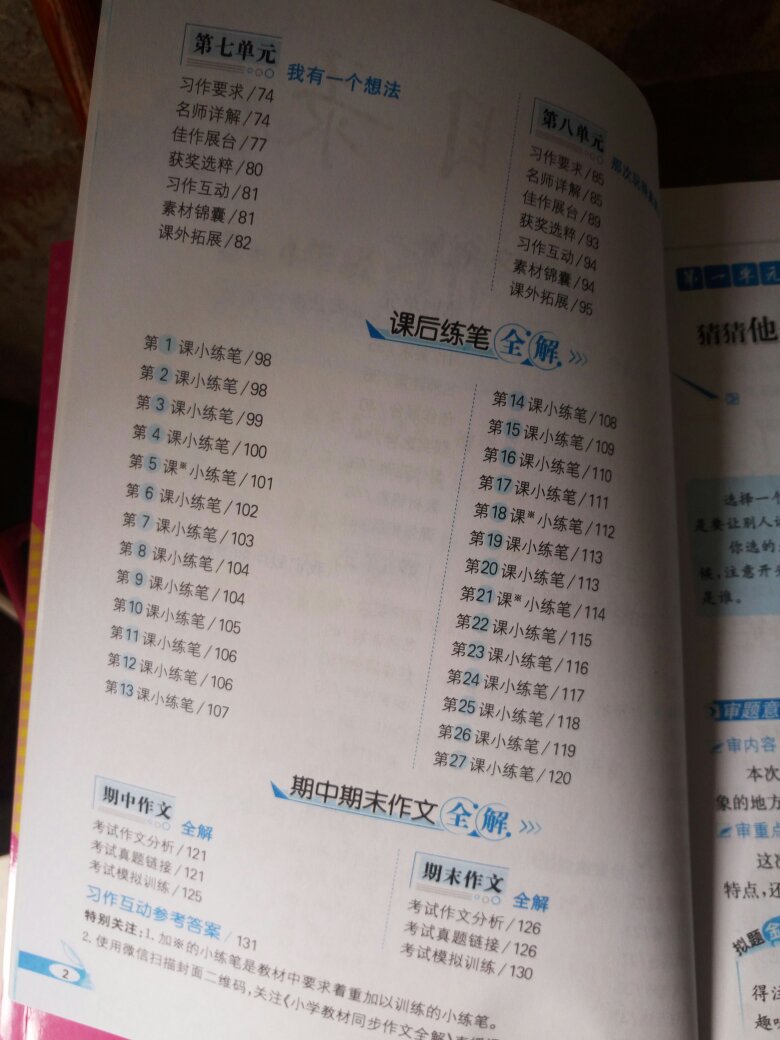 第七单元
我有一个想法
习作要求/74
名师详解/74
佳作展台/77
获奖选粹/80
习作互动/81
素材锦囊/81
课外拓展/82
第八单元
那次玩得
习作要求/85
名师详解/85
佳作展台/89
获奖选粹/93
习作互动/94
素材锦囊/94
课外拓展/95
课后练笔全解
第1课小练笔/98
第2课小练笔/98
第3课小练笔/99
第4课小练笔/100
第5课※小练笔/101
第6课小练笔/102
第7课小练笔/103
第8课小练笔/104
第9课小练笔/104
第10课小练笔/105
第11课小练笔/106
第12课小练笔/106
第13课小练笔/107
第14课小练笔/108
第15课小练笔/109
第16课小练笔/110
第17课小练笔/111
第18课※小练笔/112
第19课小练笔/113
第20课小练笔/113
第21课※小练笔/114
第22课小练笔/115
第23课小练笔/116
第24课小练笔/117
第25课小练笔/118
第26课小练笔/119
第27课小练笔/120
期中期末作文全解
期中作文
全解
考试作文分析/121
考试真题链接/121
考试模拟训练/125
期末作文
全解
考试作文分析/126
考试真题链接/126
考试模拟训练/130
习作互动参考答案/131
特别关注:1.加※的小练笔是教材中要求着重加以训练的小练笔。
2.使用微信扫描封面二维码,关注《小学教材同步作文全解》
2
第一单元
猜猜他
选择一个
是要让别人
你选的
候,注意开
是谁。
审题意
审内容
本次
象的地方
审重点
这次
特点,还
拟题
得注
趣